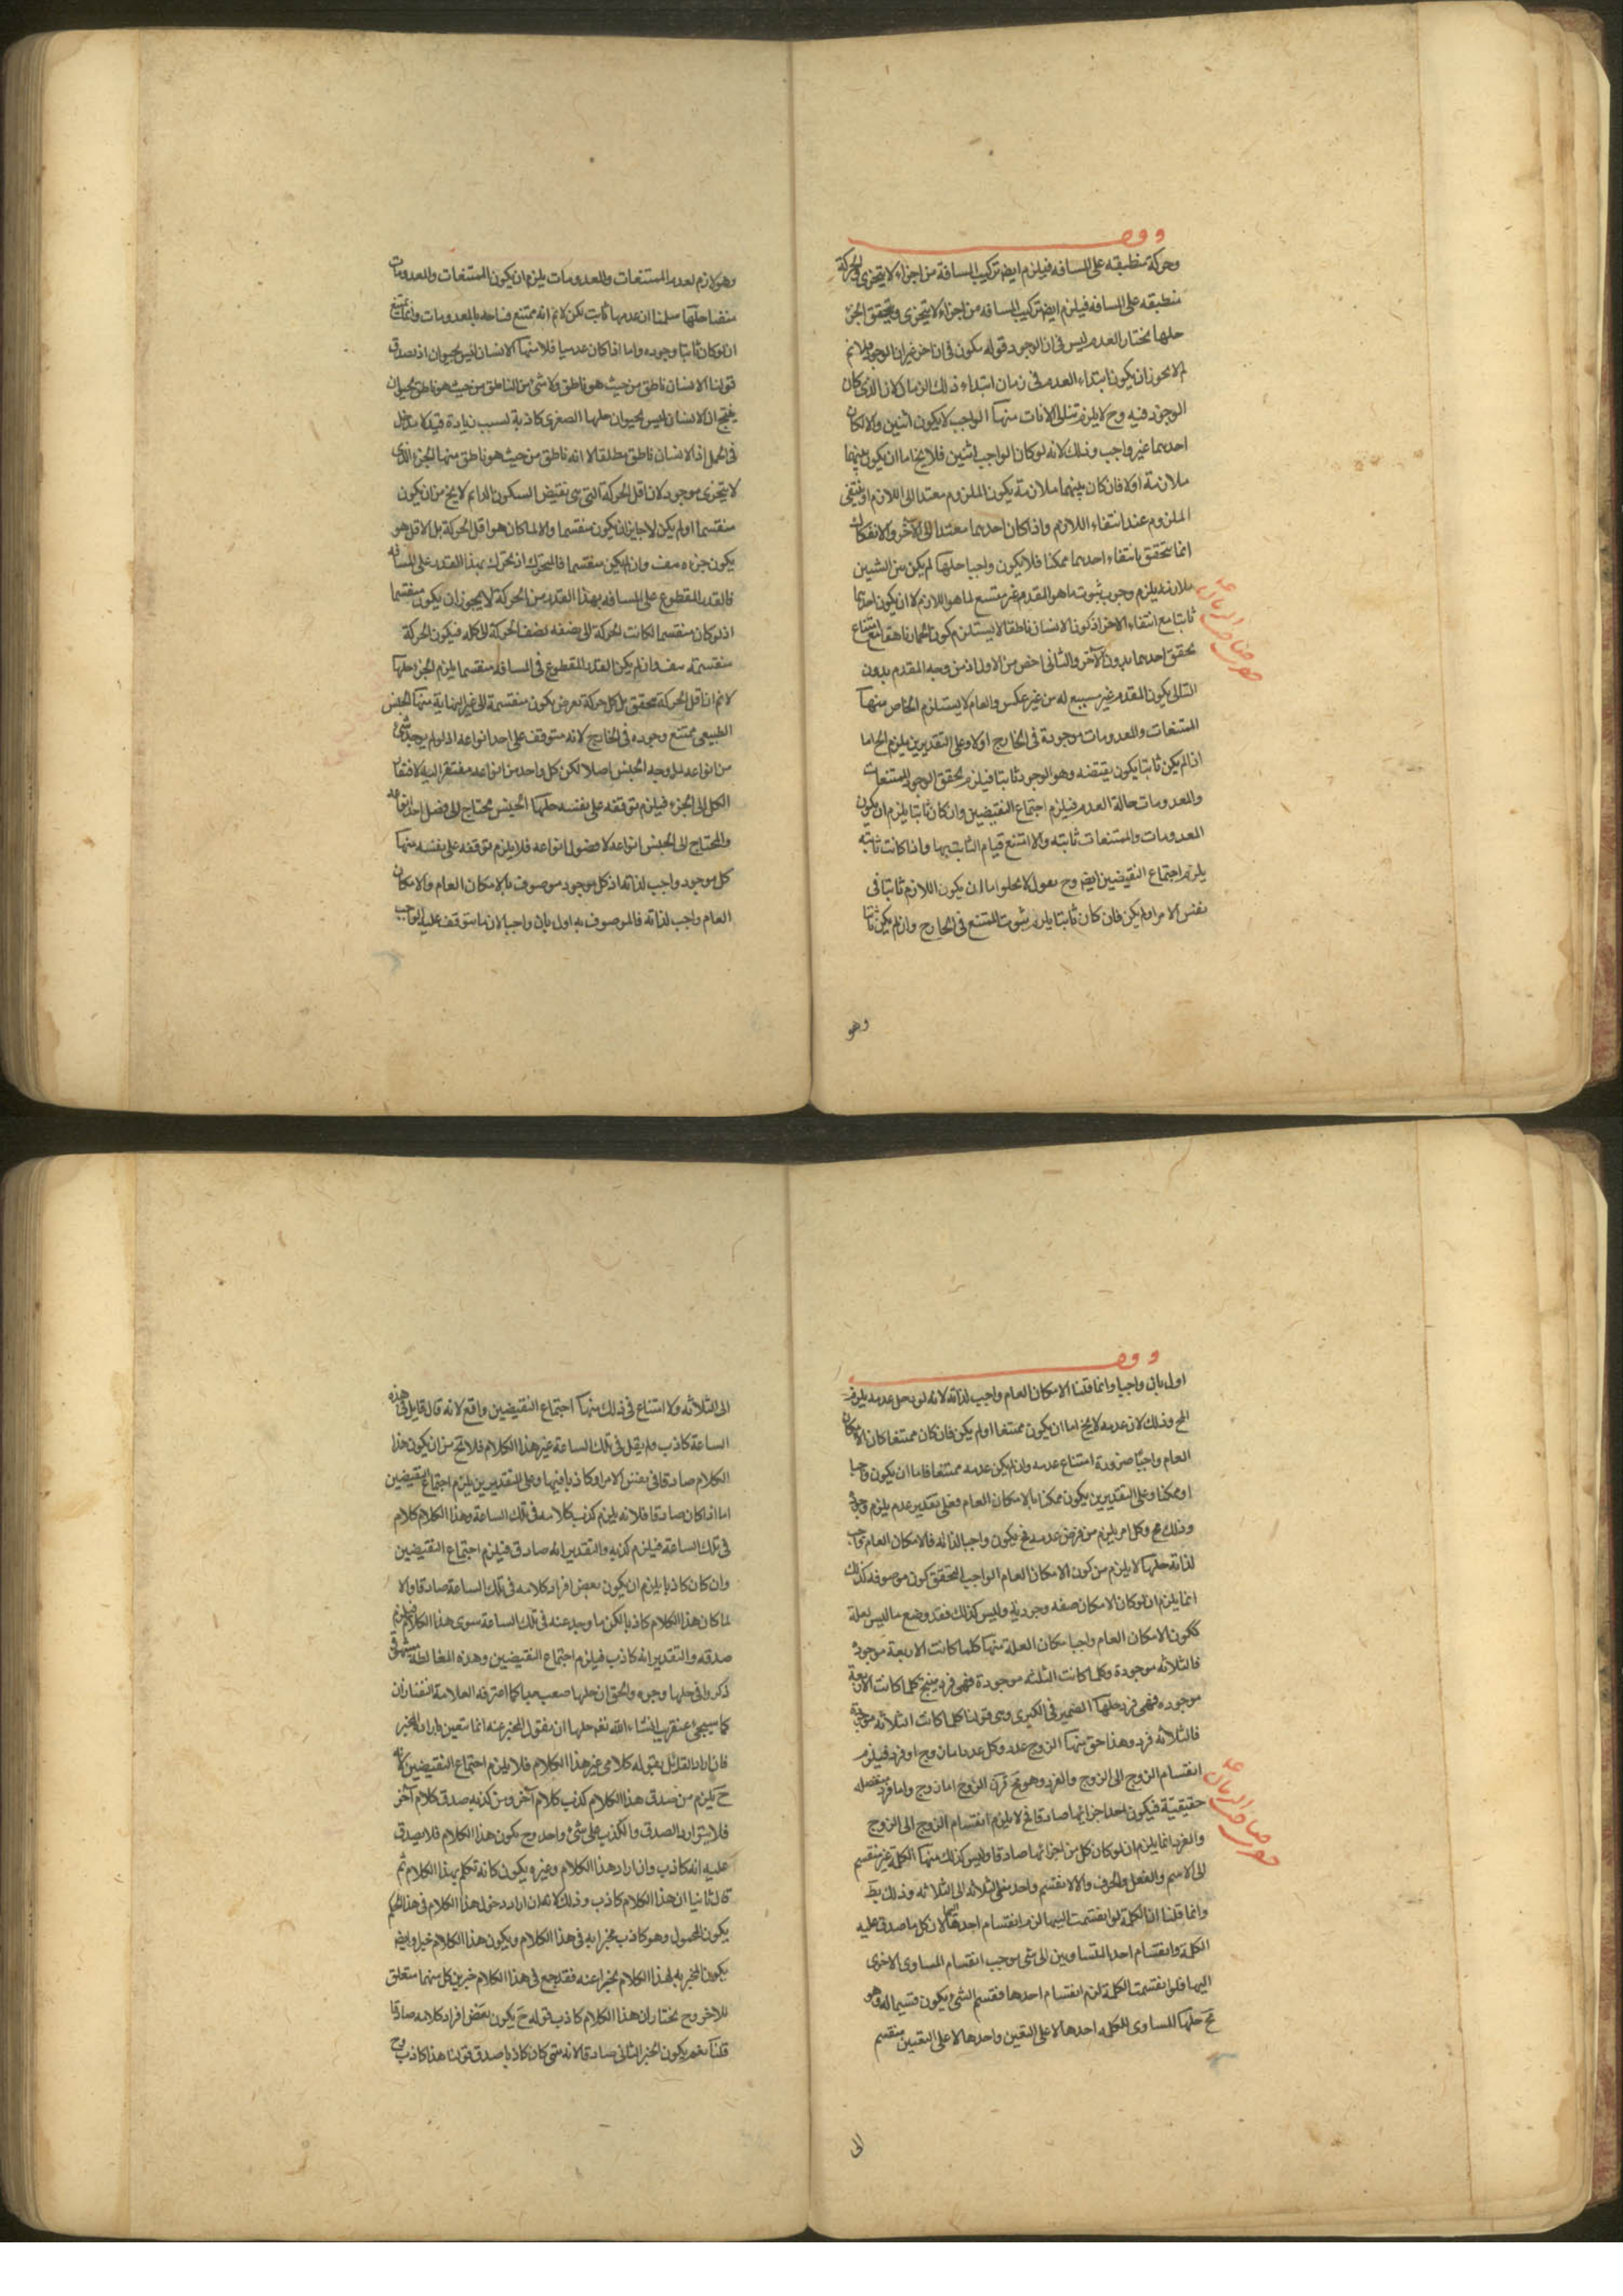 وقف
وحركة منطبقه على المسافه فيلزم ايضا تركيب المسافة من اجزاء لا يتجزى والحركة
منطبقه على المسافه فيلزم ايضا تركيب المسافه من اجزاء لا يتجزى ويتحقق الجزء
حلها نختار العدم ليس فى ان الوجود قوله يكون فى ان اخر غير ان الوجود فلا نم
لم لا يجوز ان يكون ابتداء العدم فى زمان ابتداء ذلك الزمان الان الذى كان
الوجود فيه وح لا يلزم تتالى الانات منها الواجب لا يكون اثنين والا لكان
احدهما غير واجب وذلك لانه لو كان الواجب اثنين فلا يخ اما ان يكون بينهما
ملازمة اولا فان كان بينهما ملازمة يكون الملزوم معتدا الى اللازم او ينتفى
الملزوم عند انتفاء اللازم واذا كان احدهما معتدا الى الآخر والانفكاك
انما يتحقق بانتفاء احدهما ممكنا فلا يكون واجبا حلها لم يكن بين الشيئين
ملازمة يلزم وجوب ثبوت ما هو المقدم غير متسع لما هو اللازم لا ان يكون احدهما
ثابتا مع انتفاء الاخر اذ كون الانسان ناطقا لا يستلزم كون الحمار ناهقا مع امتناع
تحقق احدهما بدون الآخر والثانى اخص من الاول اذ من وجه المقدم بدون
التالى يكون المقدم غير سبيع له من غير عكس والعام لا يستلزم الخاص منها
الممتنعات والمعدومات موجودة فى الخارج اولا وعلى التقديرين يلزم المح اما
اذا لم يكن ثابتا يكون نقيضه وهو الوجود ثابتا فيلزم تحقق الوجود للممتنعات
والمعدومات حالة العدم فيلزم اجتماع النقيضين وان كان ثابتا يلزم ان يكون
المعدومات والممتنعات ثابته والا امتنع قيام الثابت بها واذا كانت ثابته
يلزم اجتماع النقيضين ايضا وح نقول لا يخلو اما ان يكون اللازم ثابتا فى
نفس الامر اولم يكن فان كان ثابتا يلزم ثبوت الممتنع فى الخارج وان لم يكن ثابتا
وهو
وهو لازم لعدم الممتنعات والمعدومات يلزم ان يكون الممتنعات والمعدومات
منفيا حلها سلمنا ان عدمها ثابت لكن لا نم انه ممتنع قيامه بالمعدومات وانما يمتنع
ان لو كان ثابتا وجوده واما اذا كان عدميا فلا منها الانسان ليس بحيوان اذ يصدق
قولنا الانسان ناطق من حيث هو ناطق ولا شئ من الناطق من حيث هو ناطق بحيوان
ينتج ان الانسان ليس بحيوان حلها الصغرى كاذبة لسبب زيادة قيد لا مدخل
فى الحمل اذ الانسان ناطق مطلقا لا انه ناطق من حيث هو ناطق منها الجزء الذى
لا يتجزى موجود لان اقل الحركة التى هى نقيض السكون الدائم لا يخ من ان يكون
منقسما اولم يكن لا جايز ان يكون منقسما والا لما كان هو اقل الحركة بل الاقل هو
يكون جزءه هف وان لم يكن منقسما فالمتحرك اذ تحرك بهذا القدر على المسافه
فالقدر المقطوع على المسافه بهذا القدر من الحركة لا يجوز ان يكون منقسما
اذ لو كان منقسما لكانت الحركة الى نصفه نصف الحركة الى كله فيكون الحركة
منقسمة هف وان لم يكن القدر المقطوع فى المسافه منقسما يلزم الجزء حلها
لا نم ان اقل الحركة متحقق بل كل حركة تعرض يكون منقسمة الى غير النهاية منها الجنس
الطبيعى ممتنع وجوده فى الخارج لانه متوقف على احد انواعه اذ لو لم يوجد شئ
من انواعه لم يوجد الجنس اصلا لكن كل واحد من انواعه مفتقر اليه لافتقار
الكل الى الجزء فيلزم توقفه على نفسه حلها الجنس محتاج الى فصل احد انواعه
والمحتاج الى الجنس انواعه لا فصول انواعه فلا يلزم توقفه على نفسه منها
كل موجود واجب لذاته اذ كل موجود موصوف بالامكان العام والامكان
العام واجب لذاته فالموصوف به اولى بان واجبا لان ما يتوقف عليه الواجب
وقف
اولى بان واجبا وانما قلنا الامكان العام واجب لذاته لانه لو فرض عدمه يلزم
المح وذلك لان عدمه لا يخ اما ان يكون ممتنعا اولم يكن فان كان ممتنعا كان الامكان
العام واجبا ضرورة امتناع عدمه وان لم يكن عدمه ممتنعا فاما ان يكون واجبا
او ممكنا وعلى التقديرين يكون ممكنا بالامكان العام فعلى تقدير عدمه يلزم وجوده
وذلك مح وكل امر يلزم من فرض عدمه مح يكون واجبا لذاته فالامكان العام واجب
لذاته حلها لا يلزم من كون الامكان العام الواجب التحقق كون موصوفه كذلك
انما يلزم ان لو كان الامكان صفه وجودية وليس كذلك فقد وضع ما ليس بعلة
ككون الامكان العام واجبا مكان العلة منها كلما كانت الاربعة موجودة
فالثلاثه موجودة وكلما كانت الثلثه موجودة فهى فرد ينتج كلما كانت الاربعة
موجوده فهى فرد حلها الضمير فى الكبرى وهى قولنا كلما كانت الثلاثه موجودة
فالثلاثه فرد وهذا حق منها الزوج عدد وكل عدد اما زوج او فرد فيلزم
انقسام الزوج الى الزوج والفرد وهو مح قولنا الزوج اما زوج واما فرد منفصله
حقيقيّة فيكون احد اجزائها صادقا فح لا يلزم انقسام الزوج الى الزوج
والفرد انما يلزم ان لو كان كل من اجزائها صادقا وليس كذلك منها الكلمة غير منقسم
الى الاسم والفعل والحرف والا لانقسم واحد من الثلاثه الى الثلاثه وذلك بط
وانما قلنا ان الكلمة لو انقسمت اليها لزم انقسام احدها اليها لان كل ما صدق عليه
الكلمة وانقسام احد المتساويين الى شئ يوجب انقسام المساوى الاخرى
اليها فلو انقسمت الكلمة لزم انقسام احدها فقسم الشئ يكون قسيما له وهو
مح حلها المساوى للكلمه احدها لا على التعين واحدها لا على التعيين منقسم
الى
الى الثلاثه ولا امتناع فى ذلك منها اجتماع النقيضين واقع لانه قال قايل فى هذه
الساعة كاذب ولم يقل فى تلك الساعة غير هذا الكلام فلا تخ من ان يكون هذا
الكلام صادقا فى نفس الامر او كاذبا فيها وعلى التقديرين يلزم اجتماع النقيضين
اما اذا كان صادقا فلانه يلزم كذب كلامه فى تلك الساعة وهذا الكلام كلام
فى تلك الساعة فيلزم كذبه والتقدير انه صادق فيلزم اجتماع النقيضين
وان كان كاذبا يلزم ان يكون بعض افراد كلامه فى تلك الساعة صادقا والا
لما كان هذا الكلام كاذبا لكن ما وجد عنه فى تلك الساعة سوى هذا الكلام فيلزم
صدقه والتقدير انه كاذب فيلزم اجتماع النقيضين وهذه المغالطة مشهورة
ذكروا فى حلها وجوه والحق ان حلها صعب جدا كما اعترفه العلامة التفتازانى
كما سيجئ عنقريب انشاء الله نعم حلها ان نقول المخبر عنه انما يتعين بارادة المخبر
فان اراد القائل بقوله كلامى غير هذا الكلام فلا يلزم اجتماع النقيضين لانه
ح يلزم من صدق هذا الكلام كذب كلام آخر ومن كذبه صدق كلام آخر
فلا يتوارد الصدق والكذب على شئ واحد وح يكون هذا الكلام فلا يصدق
عليه انه كاذب وان اراد هذا الكلام وغيره يكون كانه تكلم بهذا الكلام ثم
قال ثانيا ان هذا الكلام كاذب وذلك لانه ان اراد دخول هذا الكلام فى هذا الحكم
يكون المحمول وهو كاذب مخبرا به فى هذا الكلام ويكون هذا الكلام خبرا وايضا
يكون المخبر به لهذا الكلام مخبرا عنه فقد جمع فى هذا الكلام خبرين كل منهما متعلق
للاخر وح نختار ان هذا الكلام كاذب قوله ح يكون بعض افراد كلامه صادقا
قلنا نعم يكون الخبر الثانى صادقا لانه متى كان كاذبا صدق قولنا هذا كاذب وح